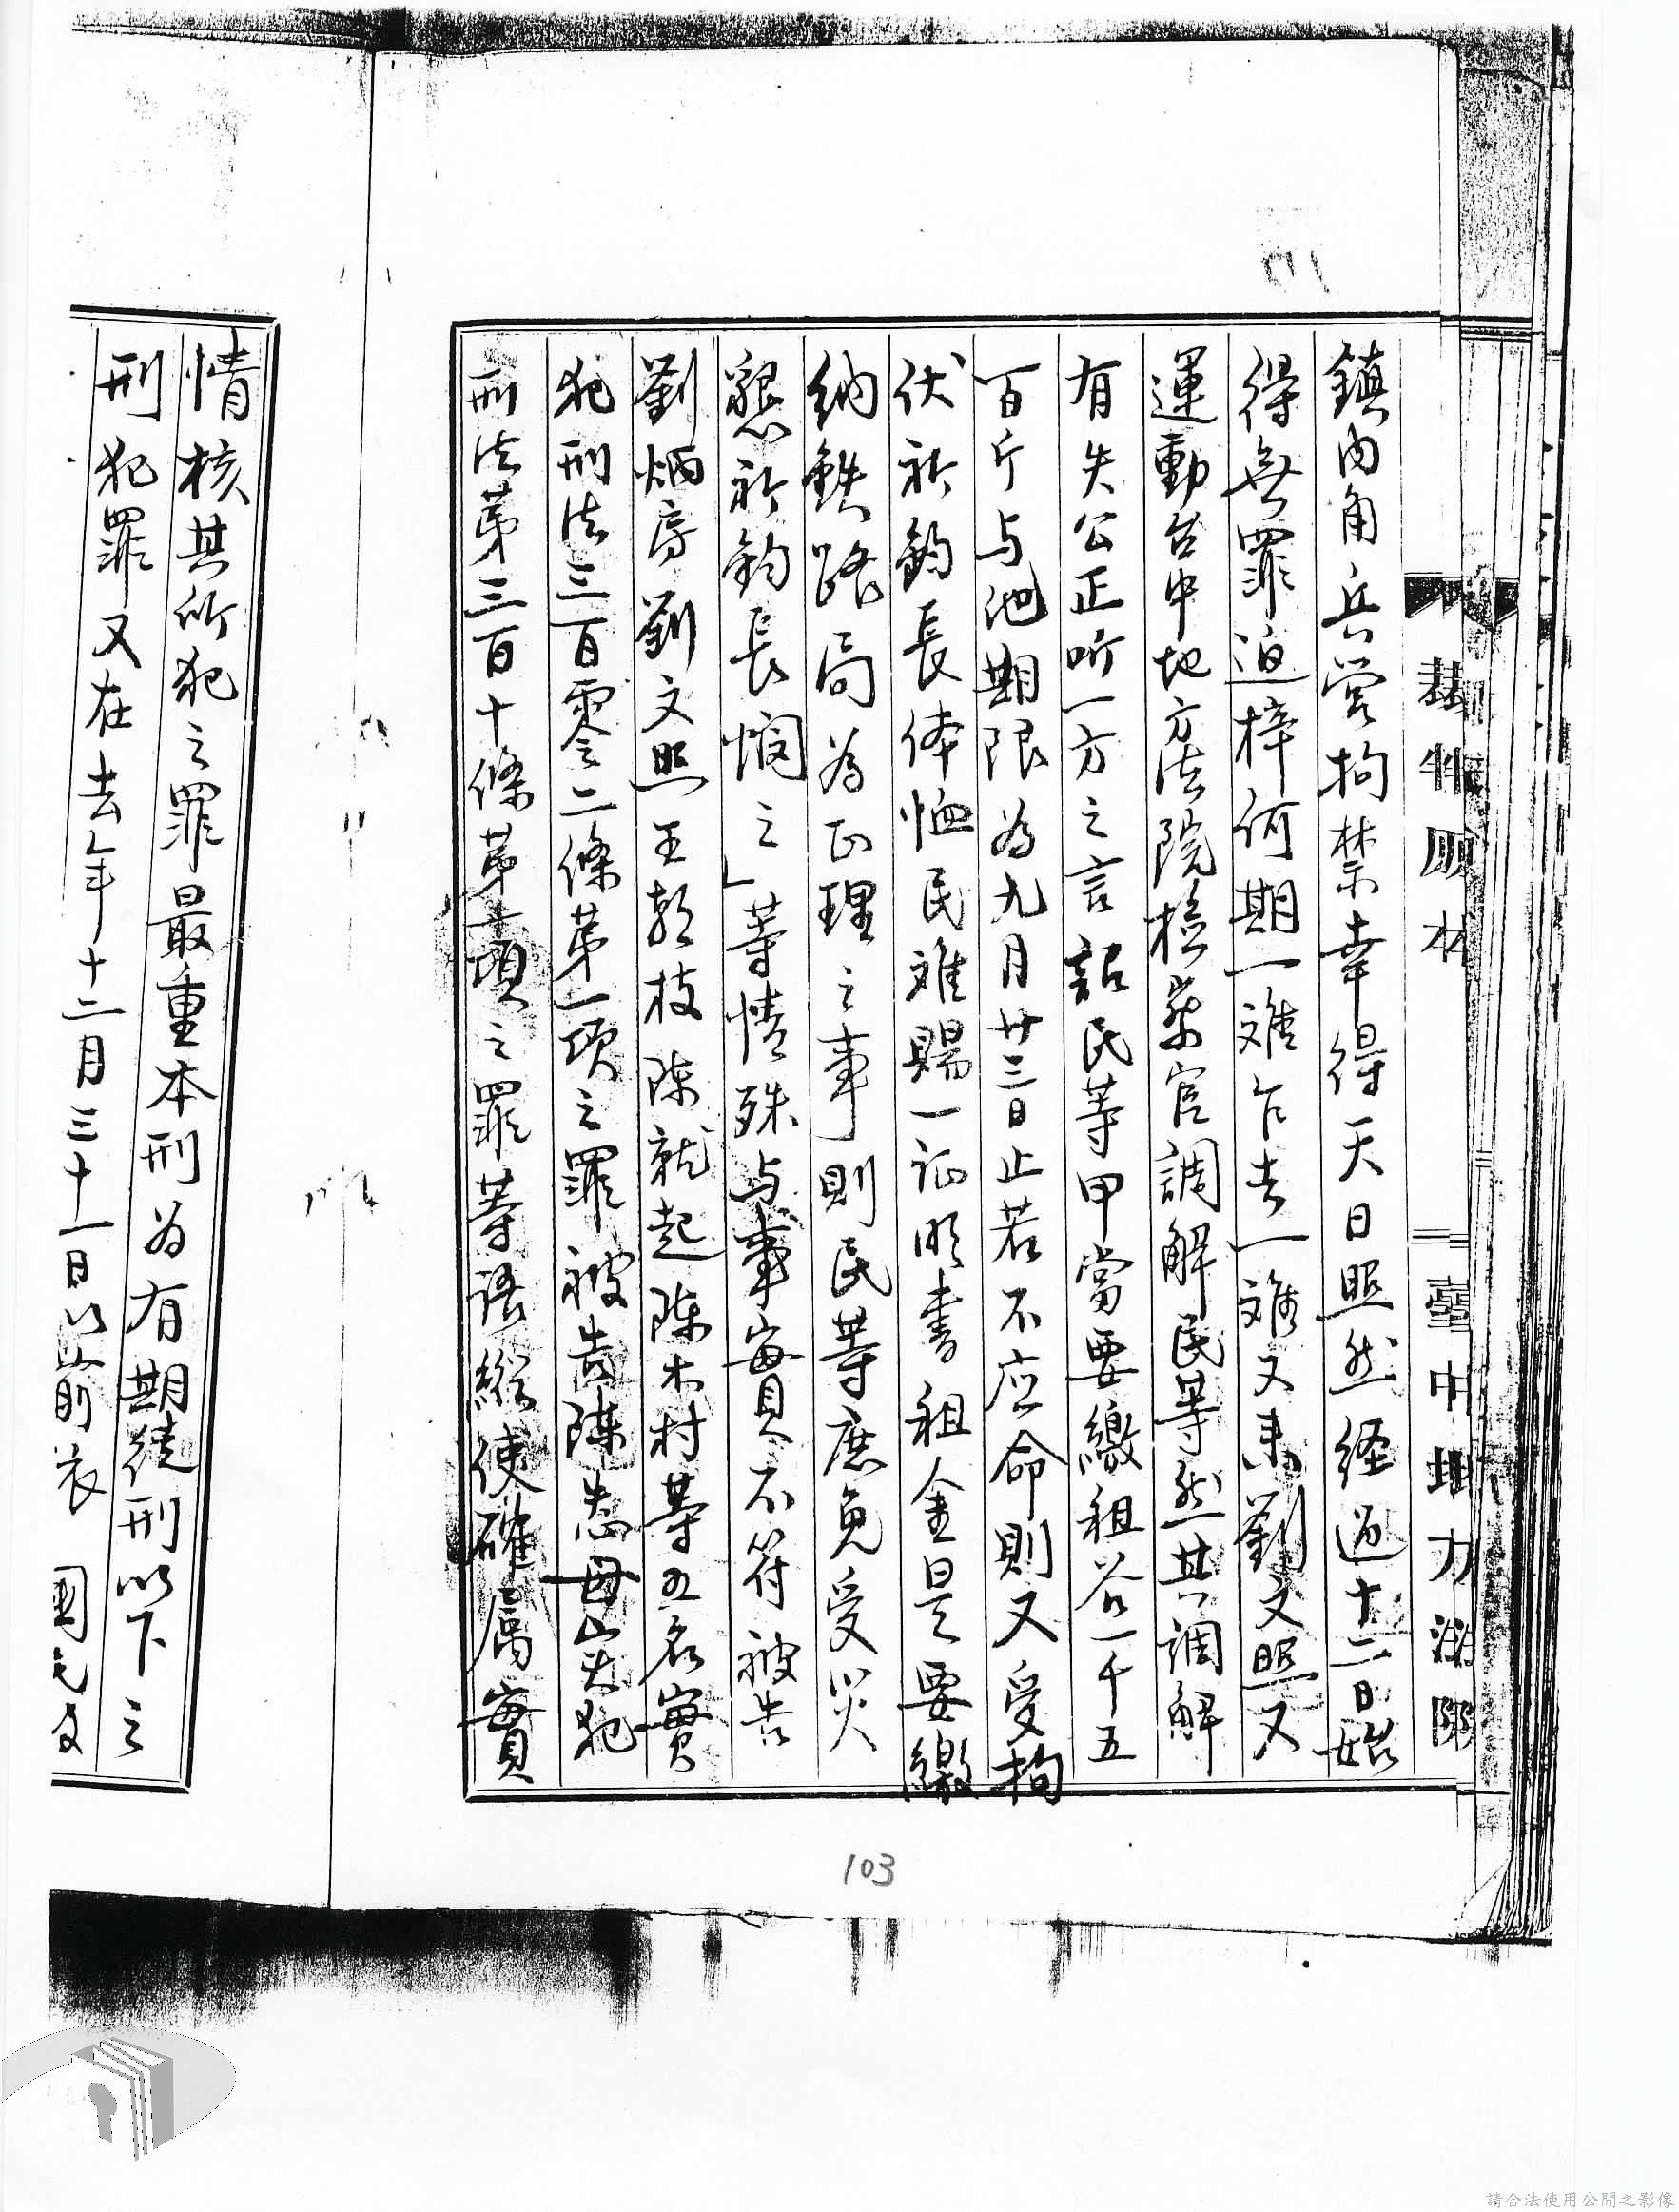 臺中地方法院
鎮內角兵营拘禁幸得天日照然経過十二日始
得無罪迫梓何期一难乍去一难又来劉文照又
運動台中地方法院检察官調解民等然其調解
有失公正听一方之言詔民等甲當要繳租谷一千五
百斤与他期限為九月廿三日止若不应命則又受拘
伏祈鈞長体恤民难賜一証明書租金是要繳
纳鉄路局為正理之事則民等庶免受災
懇祈鈞長憫之」等情殊与事實不符被告
劉炳房劉文照王朝枝陳就起陳木村等五名實
犯刑法三百零二條第一項之罪被告陳志毋岩犬犯
刑法第三百十條第一項之罪等語縱使確属實
情核其所犯之罪最重本刑为有期徒刑以下之
刑犯罪又在去年十二月三十一日以前衣國民政
103
請合法使用公開之影像